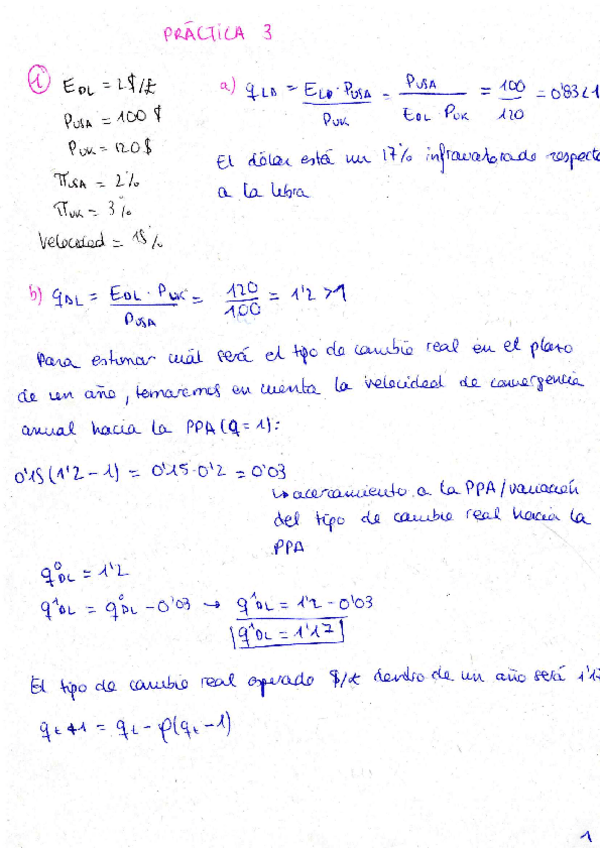 PRÁCTICA 3
1) E_DL = 2$/£
P_USA = 100 $
P_UK = 120 $
π_USA = 2%
π_UK = 3%
Velocidad = 15%
a) q_LD = E_LD · P_USA / P_UK = P_USA / E_DL · P_UK = 100 / 120 = 0'83 < 1
El dólar está un 17% infravalorado respecto
a la libra
b) q_DL = E_DL · P_UK / P_USA = 120 / 100 = 1'2 > 1
Para estimar cuál será el tipo de cambio real en el plazo
de un año, tomaremos en cuenta la velocidad de convergencia
anual hacia la PPA (q = 1):
0'15 (1'2 - 1) = 0'15 · 0'2 = 0'03
↳ acercamiento a la PPA / variación
del tipo de cambio real hacia la
PPA
q⁰_DL = 1'2
q¹_DL = q⁰_DL - 0'03 → q¹_DL = 1'2 - 0'03
q¹_DL = 1'17
El tipo de cambio real esperado $/£ dentro de un año será 1'17
q_t+1 = q_t - ρ(q_t - 1)
1